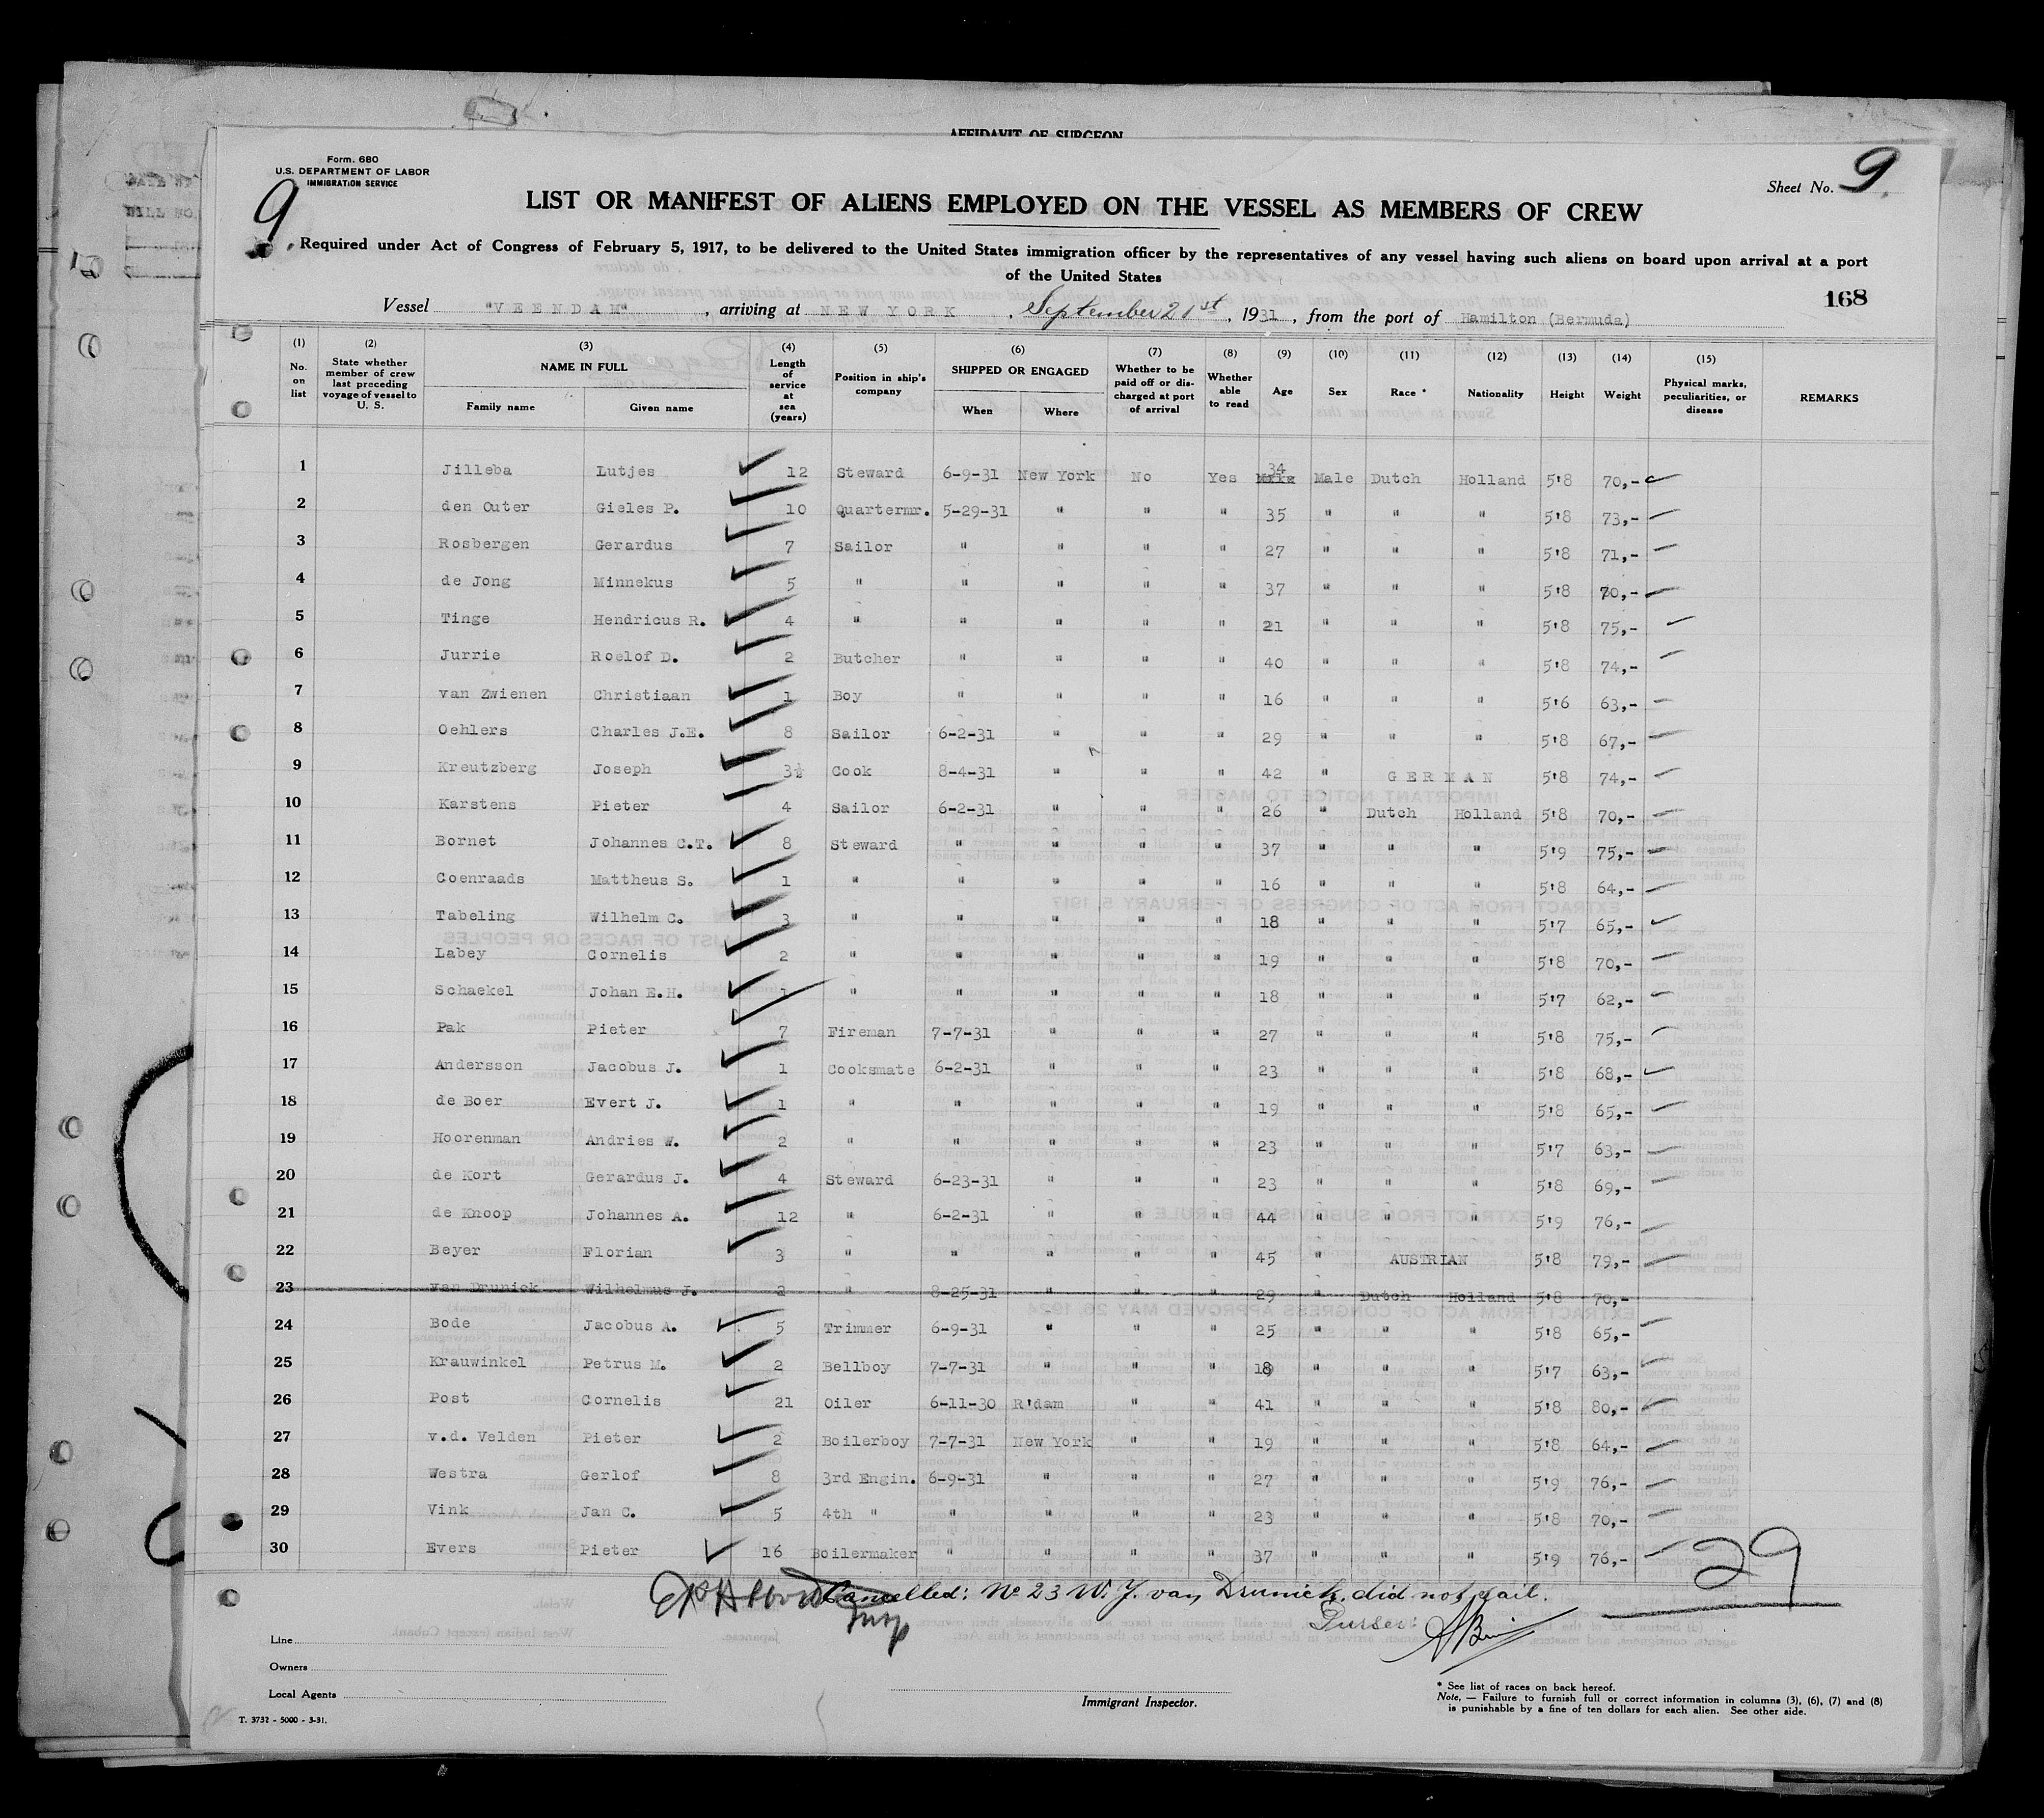 AFFIDAVIT OF SURGEON
Form. 680
U.S. DEPARTMENT OF LABOR
IMMIGRATION SERVICE
9
Sheet No. 9
LIST OR MANIFEST OF ALIENS EMPLOYED ON THE VESSEL AS MEMBERS OF CREW
Required under Act of Congress of February 5, 1917, to be delivered to the United States immigration officer by the representatives of any vessel having such aliens on board upon arrival at a port
of the United States
168
Vessel "VEENDAM", arriving at NEW YORK, September 21st, 1931, from the port of Hamilton (Bermuda)
(1) No. on list (2) State whether member of crew last preceding voyage of vessel to U. S. (3) NAME IN FULL Family name Given name (4) Length of service at sea (years) (5) Position in ship's company (6) SHIPPED OR ENGAGED When Where (7) Whether to be paid off or discharged at port of arrival (8) Whether able to read (9) Age (10) Sex (11) Race * (12) Nationality (13) Height (14) Weight (15) Physical marks, peculiarities, or disease REMARKS
1 Jilleba Lutjes 12 Steward 6-9-31 New York No Yes 34 Male Dutch Holland 5'8 70,-
2 den Outer Gieles P. 10 Quartermr. 5-29-31 " " " 35 " " " 5'8 73,-
3 Rosbergen Gerardus 7 Sailor " " " " 27 " " " 5'8 71,-
4 de Jong Minnekus 5 " " " " " 37 " " " 5'8 70,-
5 Tinge Hendricus R. 4 " " " " " 21 " " " 5'8 75,-
6 Jurrie Roelof D. 2 Butcher " " " " 40 " " " 5'8 74,-
7 van Zwienen Christiaan 1 Boy " " " " 16 " " " 5'6 63,-
8 Oehlers Charles J.E. 8 Sailor 6-2-31 " " " 29 " " " 5'8 67,-
9 Kreutzberg Joseph 3½ Cook 8-4-31 " " " 42 " GERMAN 5'8 74,-
10 Karstens Pieter 4 Sailor 6-2-31 " " " 26 " Dutch Holland 5'8 70,-
11 Bornet Johannes C.T. 8 Steward " " " " 37 " " " 5'9 75,-
12 Coenraads Mattheus S. 1 " " " " " 16 " " " 5'8 64,-
13 Tabeling Wilhelm C. 3 " " " " " 18 " " " 5'7 65,-
14 Labey Cornelis 2 " " " " " 19 " " " 5'8 70,-
15 Schaekel Johan E.H. 1 " " " " " 18 " " " 5'7 62,-
16 Pak Pieter 7 Fireman 7-7-31 " " " 27 " " " 5'8 75,-
17 Andersson Jacobus J. 1 Cooksmate 6-2-31 " " " 23 " " " 5'8 68,-
18 de Boer Evert J. 1 " " " " " 19 " " " 5'8 65,-
19 Hoorenman Andries W. 2 " " " " " 23 " " " 5'7 63,-
20 de Kort Gerardus J. 4 Steward 6-23-31 " " " 23 " " " 5'8 69,-
21 de Knoop Johannes A. 12 " 6-2-31 " " " 44 " " " 5'9 76,-
22 Beyer Florian 3 " " " " " 45 " AUSTRIAN 5'8 79,-
23 van Drunick Wilhelmus J. 2 " 8-25-31 " " " 29 " Dutch Holland 5'8 70,-
24 Bode Jacobus A. 5 Trimmer 6-9-31 " " " 25 " " " 5'8 65,-
25 Krauwinkel Petrus M. 2 Bellboy 7-7-31 " " " 18 " " " 5'7 63,-
26 Post Cornelis 21 Oiler 6-11-30 R'dam " " 41 " " " 5'8 80,-
27 v.d. Velden Pieter 2 Boilerboy 7-7-31 New York " " 19 " " " 5'8 64,-
28 Westra Gerlof 8 3rd Engin. 6-9-31 " " " 27 " " " 5'9 76,-
29 Vink Jan C. 5 4th " " " " " 23 " " " 5'8 70,-
30 Evers Pieter 16 Boilermaker " " " " 37 " " " 5'9 76,-
29
Cancelled: No 23 W. J. van Drunick, did not sail.
Purser:
Line
Owners
Local Agents
Immigrant Inspector.
* See list of races on back hereof.
Note. — Failure to furnish full or correct information in columns (3), (6), (7) and (8)
is punishable by a fine of ten dollars for each alien. See other side.
T. 3732 - 5000 - 3-31.